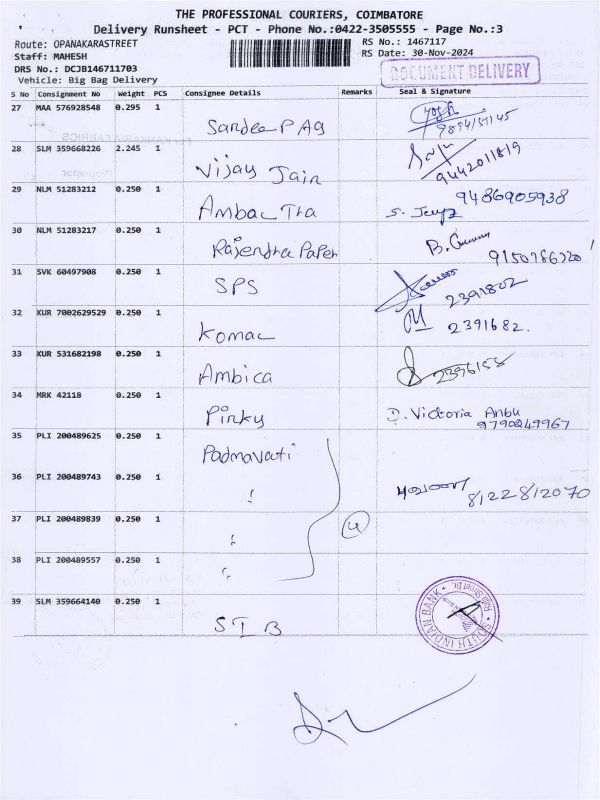 THE PROFESSIONAL COURIERS, COIMBATORE
Delivery Runsheet - PCT - Phone No.:0422-3505555 - Page No.:3
Route: OPANAKARASTREET RS No.: 1467117
Staff: MAHESH RS Date: 30-Nov-2024
DRS No.: DCJB146711703
Vehicle: Big Bag Delivery
DOCUMENT DELIVERY
S No Consignment No Weight PCS Consignee Details Remarks Seal & Signature
27 MAA 576928548 0.295 1 Sandeep AG
28 SLM 359668226 2.245 1 Vijay Jain 9442011819
29 NLM 51283212 0.250 1 9486905938
30 NLM 51283217 0.250 1 Rajendra Paper
31 SVK 60497908 0.250 1 SPS 2391802
32 KUR 7002629529 0.250 1 Komac 2391682.
33 KUR 531682198 0.250 1 Ambica
34 MRK 42118 0.250 1 Pinky D. Victoria Anbu
9790249967
35 PLI 200489625 0.250 1 Padmavati
36 PLI 200489743 0.250 1 8122812070
37 PLI 200489839 0.250 1 4
38 PLI 200489557 0.250 1
39 SLM 359664140 0.250 1 SIB
SOUTH INDIAN BANK